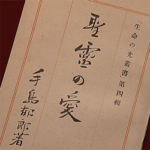 生命の光叢書第四輯
聖靈の愛
手島郁郎著